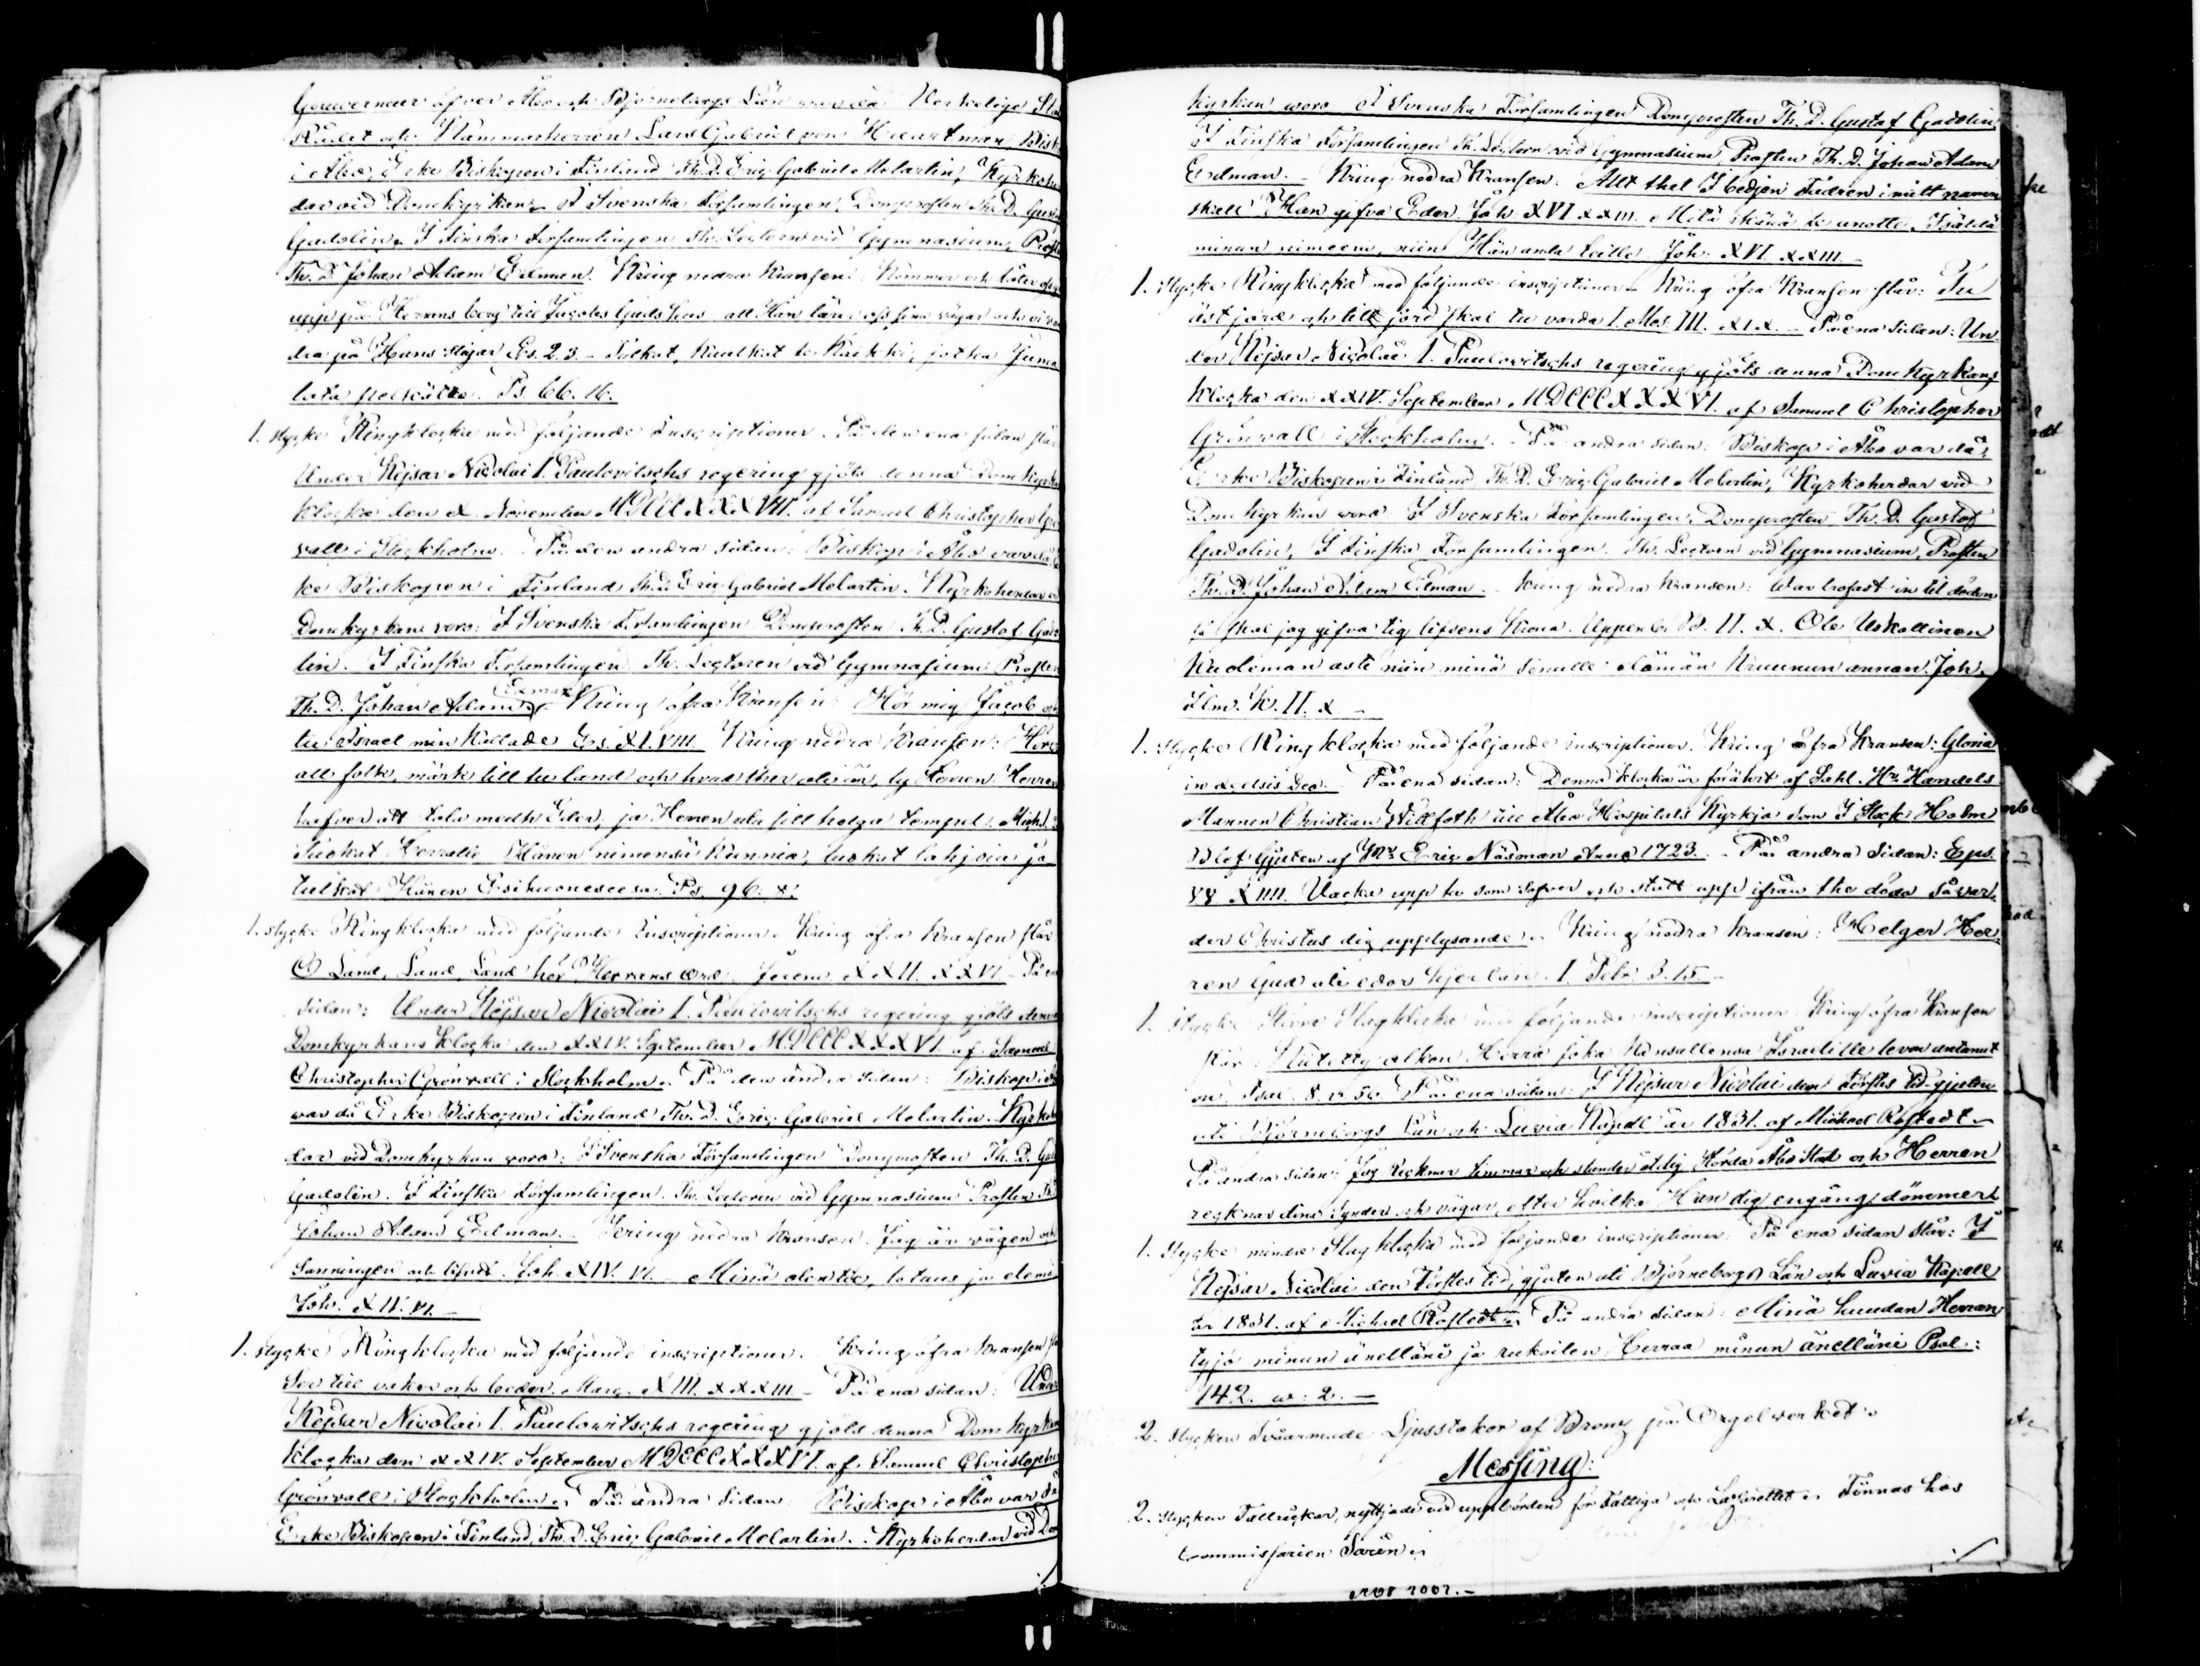 Gouverneur öfver Åbo och Björneborgs Län war då Verkelige Stats
Rådet och Kammarherren Lars Gabriel von Haartman, Biskop
i Åbo, Erke Biskopen i Finland Th. D. Eric Gabriel Melartin, Kyrkoher
dar vid Domkyrkan: I Svenska Församlingen, Domprosten Th. D. Gustaf
Gadolin. I Finska Församlingen Th. Lectorn vid Gymnasium, Prosten
Th. D. Johan Adam Edman. Kring nedra Kransen: Kommer och låter oss gå
upp på Herrans berg till Jacobs Guds hus att Han lärer oss sina vägar och vi van
dra på Hans stigar Es. 2. 3. - Tulkat, Kuulkat te Kaikki, jotka Juma
lata pelkätte. Ps. 66. 16.
1. stycke Ringklocka med följande inscriptioner. På den ena sidan står
Under Kejsar Nicolai I. Paulovitschs regering gjöts denna Domkyrko
klocka den X. November MDCCCXXXVII. af Samuel Christopher Grön
vall i Stockholm. - På den andra sidan: Biskop i Åbo var då Er
ke Biskopen i Finland Th. D. Eric Gabriel Melartin. Kyrkoherdar vid
Domkyrkan voro: I Svenska Församlingen Domprosten Th. D. Gustaf Gado
lin. I Finska Församlingen Th. Lectoren vid Gymnasium Prosten
Th. D. Johan Adam Edman. Kring öfra Kransen: Hör mig Jacob och
tu Israel min Kallade Es. XLVIII. Kring nedra Kransen: Hörer
all folk, märk till tu land och hvad ther uti är, ty Herren Herren
hafver att tala medh Eder, ja Herren utu sitt helga tempel. Mich. 1.
Tuokat Herralle Hänen nimensä Kunnia, tuokat lahjoja ja
tulkat Hänen Esihuoneseensa. Ps. 96. 8.
1. stycke Ringklocka med följande inscriptioner. Kring öfra Kransen står
O Land, Land, Land hör Herrans ord. Jerem. XXII. XXVI. - På ena
sidan: Under Kejsar Nicolai I. Paulowitschs regering gjöts denna
Domkyrkans Klocka den XXIV. September MDCCCXXXVI. af Samuel
Christopher Grönvall i Stockholm. På den andra sidan: Biskop i Åbo
var då Erke Biskopen i Finland Th. D. Eric Gabriel Melartin. Kyrkoher
dar vid Domkyrkan voro: I Svenska Församlingen Domprosten Th. D. Gustaf
Gadolin. I Finska Församlingen. Th. Lectoren vid Gymnasium Prosten Th. D.
Johan Adam Edman. Kring nedra Kransen: Jag är vägen och
Sanningen och lifvet. Joh. XIV. VI. - Minä olen tie, totuus ja elämä
Joh. XIV. VI. -
1. stycke Ringklocka med följande inscriptioner. Kring öfra Kransen står
Ser till vaker och beder. Marc. XIII. XXXIII - På ena sidan: Under
Kejsar Nicolai I. Paulowitschs regering gjöts denna Domkyrkans
Klocka den XXIV. September MDCCCXXXVI. af Samuel Christopher
Grönvall i Stockholm. På andra sidan: Biskop i Åbo var då
Erke Biskopen i Finland, Th. D. Eric Gabriel Melartin. Kyrkoherdar vid Dom
kyrkan woro I Svenska Församlingen Domprosten Th. D. Gustaf Gadolin,
I Finska Församlingen Th. Lectorn vid Gymnasium Prosten Th. D. Johan Adam
Edman. - Kring nedra Kransen: Allt thet I bedjen Fadren i mitt namn
skall Han gifva Eder Joh. XVI. XXIII. Mitä ikänä te anotte Isäldä
minun nimeeni, niin Hän anda teille Joh. XVI. XXIII. -
1. stycke Ringklocka med följande inscriptioner. Kring öfra Kransen står: Tu
äst jord och till jord skal tu varda I. Mos. III. XIX. - På ena sidan: Un
der Kejsar Nicolai I. Paulowitschs regering gjöts denna Domkyrkans
Klocka den XXIV. September MDCCCXXXVI. af Samuel Christopher
Grönvall i Stockholm. - På andra sidan: Biskop i Åbo var då,
Erke Biskopen i Finland Th. D. Eric Gabriel Melartin, Kyrkoherdar vid
Domkyrkan woro I Svenska Församlingen. Domprosten Th. D. Gustaf
Gadolin, I Finska Församlingen. Th. Lectorn vid Gymnasium, Prosten
Th. D. Johan Adam Edman. - Kring nedra Kransen: War trofast in til döden
så skal jag gifva tig lifsens Krona. Uppenb. B. II. X. Ole Uskollinen
Kuoleman asti niin minä sinulle elämän Kruunun annan. Joh.
Ilm. K. II. X. -
1. stycke Ringklocka med följande inscriptioner. Kring öfra Kransen: Gloria
in exelsis Deo. På ena sidan: Denna klocka är förährt af Sahl. Hr. Handels
Mannen Christian Wittfoth till Åbo Hospitals Kyrkja som I Stock Holm
Blef Gjuten af Mr. Eric Näsman Anno 1723. - På andra sidan: Eps.
VV XIIII. Vacka upp tu som sofver och statt upp ifrån the döda så var,
der Christus dig upplysande. Kring nedra Kransen: Helger Her,
ren Gud uti edor hjertan. I. Petr. 3. 15. -
1. stycke större Slagklocka med följande inscriptioner Kring öfra Kransen
står: Herra joka
Psal. På ena sidan: I Kejsar Nicolai den Förstes tid gjuten
uti Björneborgs Län och Luvia Kapell år 1831. af Michael Rostedt -
På andra sidan: Jag räcknar timmar och stunder åt tig Stora Åbo Stad och Herren
räcknar dina Synder och vägar, efter hvilka Han dig engång dömmer.
1. stycke mindre Slagklocka med följande inscriptioner: På ena sidan står: I
Kejsar Nicolai den Förstes tid, gjuten uti Björneborgs Län och Luvia Kapell
år 1831. af Michael Rostedt. På andra sidan: Minä huudan Herran
tygö minun änelläni ja rukoilen Herraa minun änelläni Psal.:
142. w: 2. -
2. stycken Tvåarmade Ljusstakar af Bronz på Orgelverket.
Messing:
2. stycken Tallrickar, nyttjade vid uppbörden för Fattiga och Lazarettet. Finnas hos
Commissarien Sarén.